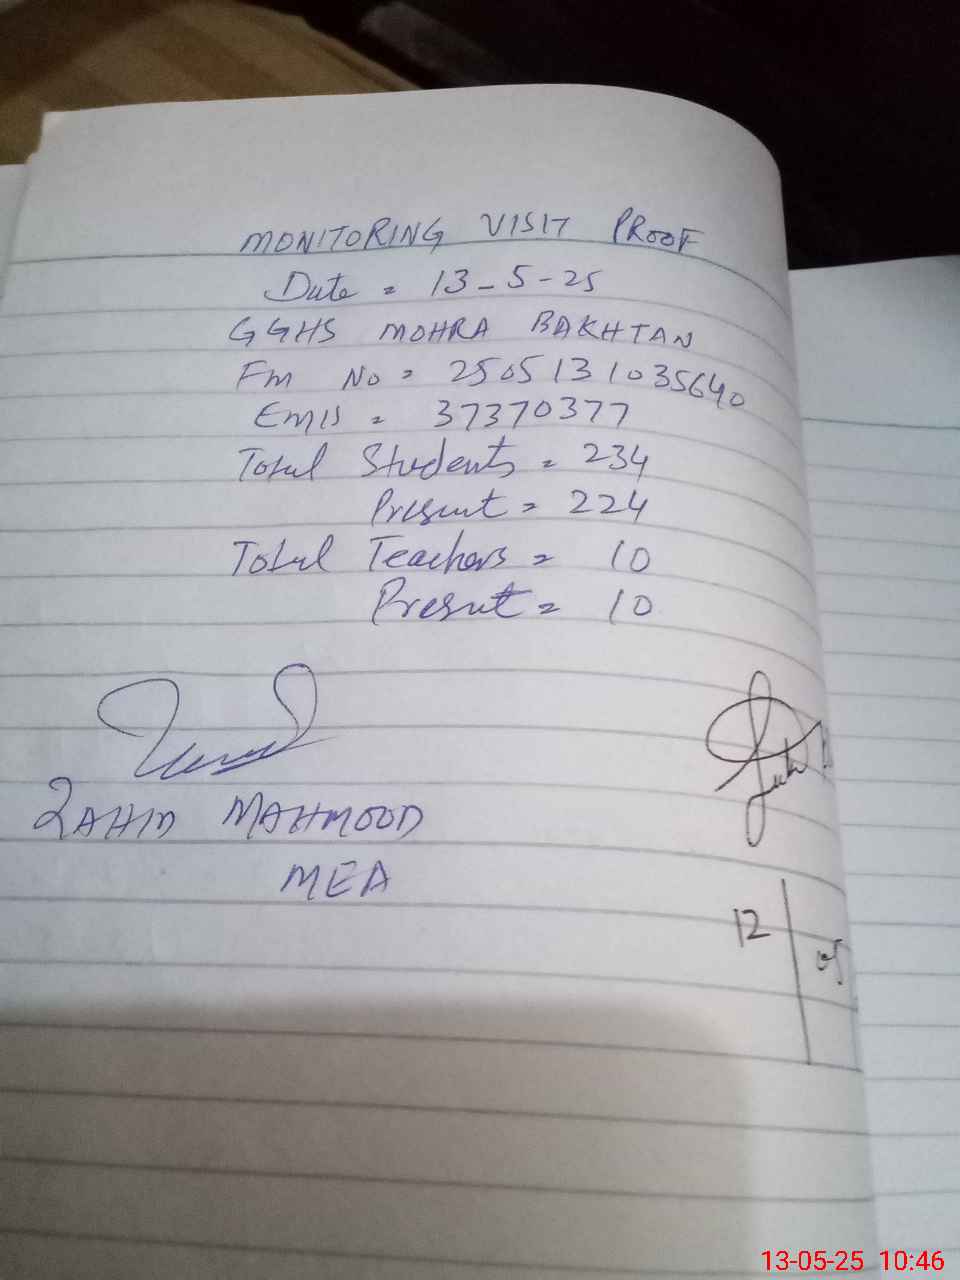 MONITORING VISIT PROOF
Date = 13-5-25
GGHS MOHRA BAKHTAN
Fm No = 2505131035640
EMIS = 37370377
Total Students = 234
Present = 224
Total Teachers = 10
Present = 10
ZAHID MAHMOOD
MEA
12
05
13-05-25 10:46